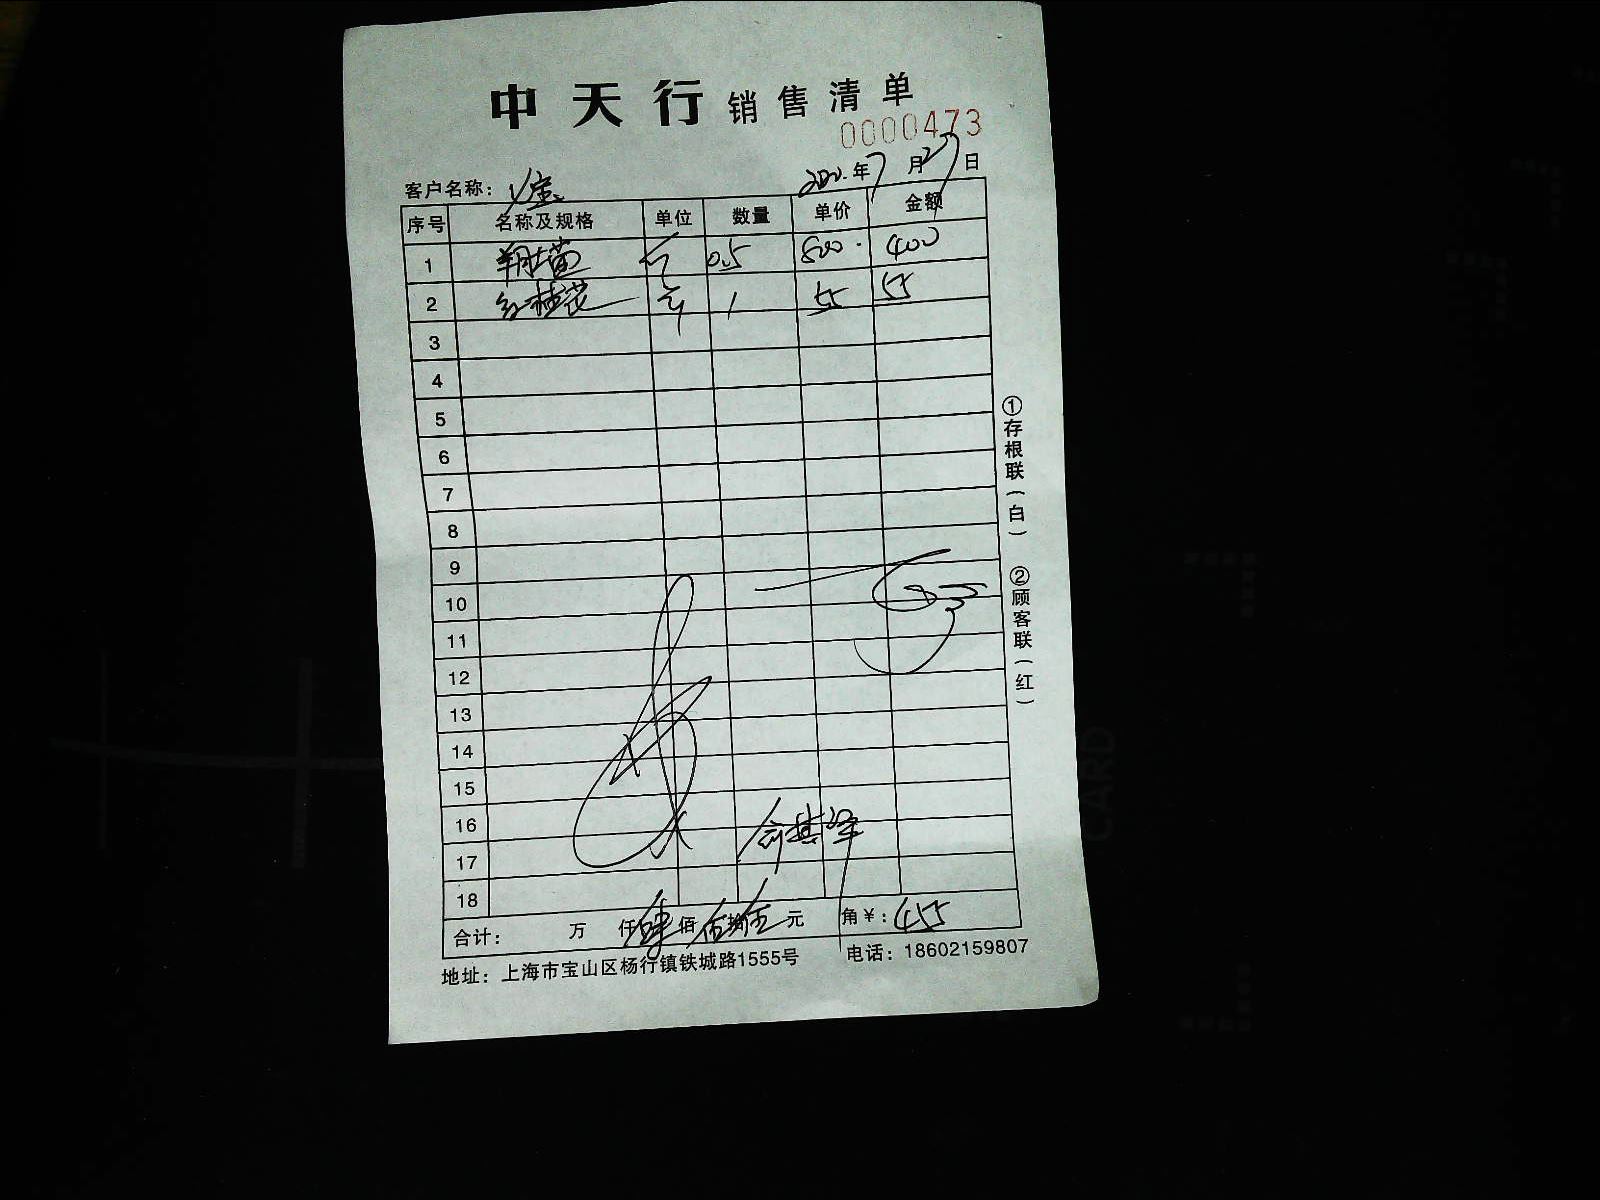 中天行 销售清单
0000473
2020年7月27日
客户名称:
序号 名称及规格 单位 数量 单价 金额
1 0.5 800. 400
2 红桂花 斤 1 55 55
3
4
5
6
7
8
9
10
11
12
13
14
15
16
17
18
合计: 万 仟肆佰伍拾伍元 角¥:455
地址:上海市宝山区杨行镇铁城路1555号 电话:18602159807
①存根联(白) ②顾客联(红)